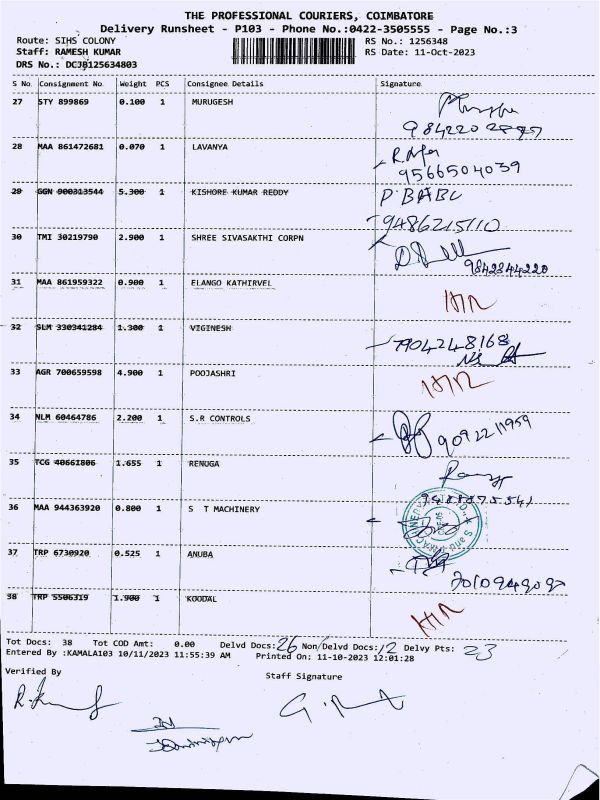 THE PROFESSIONAL COURIERS, COIMBATORE
Delivery Runsheet - P103 - Phone No.:0422-3505555 - Page No.:3
Route: SIHS COLONY RS No.: 1256348
Staff: RAMESH KUMAR RS Date: 11-Oct-2023
DRS No.: DCJB125634803
S No Consignment No Weight PCS Consignee Details Signature
27 STY 899869 0.100 1 MURUGESH
28 MAA 861472681 0.070 1 LAVANYA
9566504039
29 GGN 900313544 5.300 1 KISHORE KUMAR REDDY P. BABU
9486215110
30 TMI 30219790 2.900 1 SHREE SIVASAKTHI CORPN
9842844220
31 MAA 861959322 0.900 1 ELANGO KATHIRVEL
32 SLM 330341284 1.300 1 VIGINESH
7904248168
33 AGR 700659598 4.900 1 POOJASHRI
34 NLM 60464786 2.200 1 S.R CONTROLS
9092211959
35 TCG 40661806 1.655 1 RENUGA
36 MAA 944363920 0.800 1 S T MACHINERY
37 TRP 6730920 0.525 1 ANUBA
38 TRP 5506319 1.900 1 KOODAL
Tot Docs: 38 Tot COD Amt: 0.00 Delvd Docs: 26 Non Delvd Docs: 12 Delvy Pts: 23
Entered By :KAMALA103 10/11/2023 11:55:39 AM Printed On: 11-10-2023 12:01:28
Verified By Staff Signature